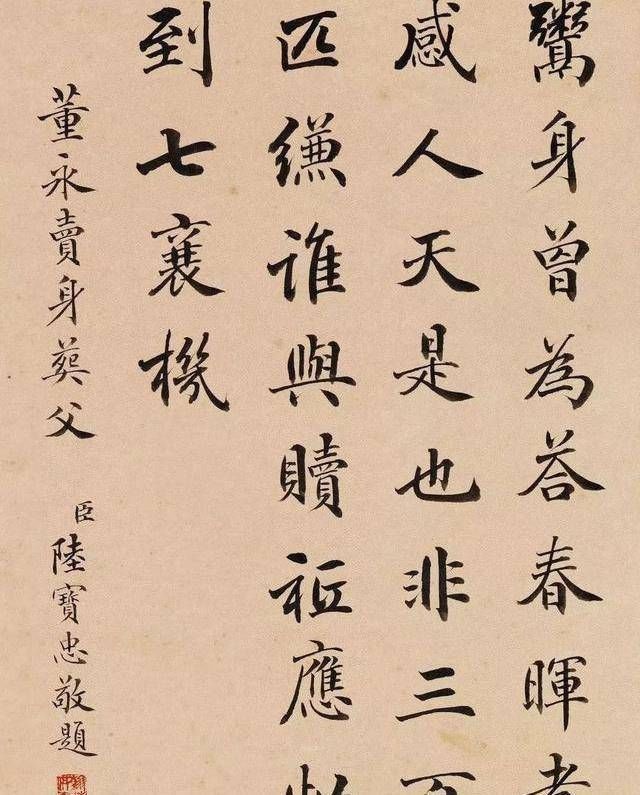 鬻身曾為荅春暉孝
感人天是也非三百
匹縑誰與贖祗應
到七襄機
董永賣身葬父
臣陸寶忠敬題